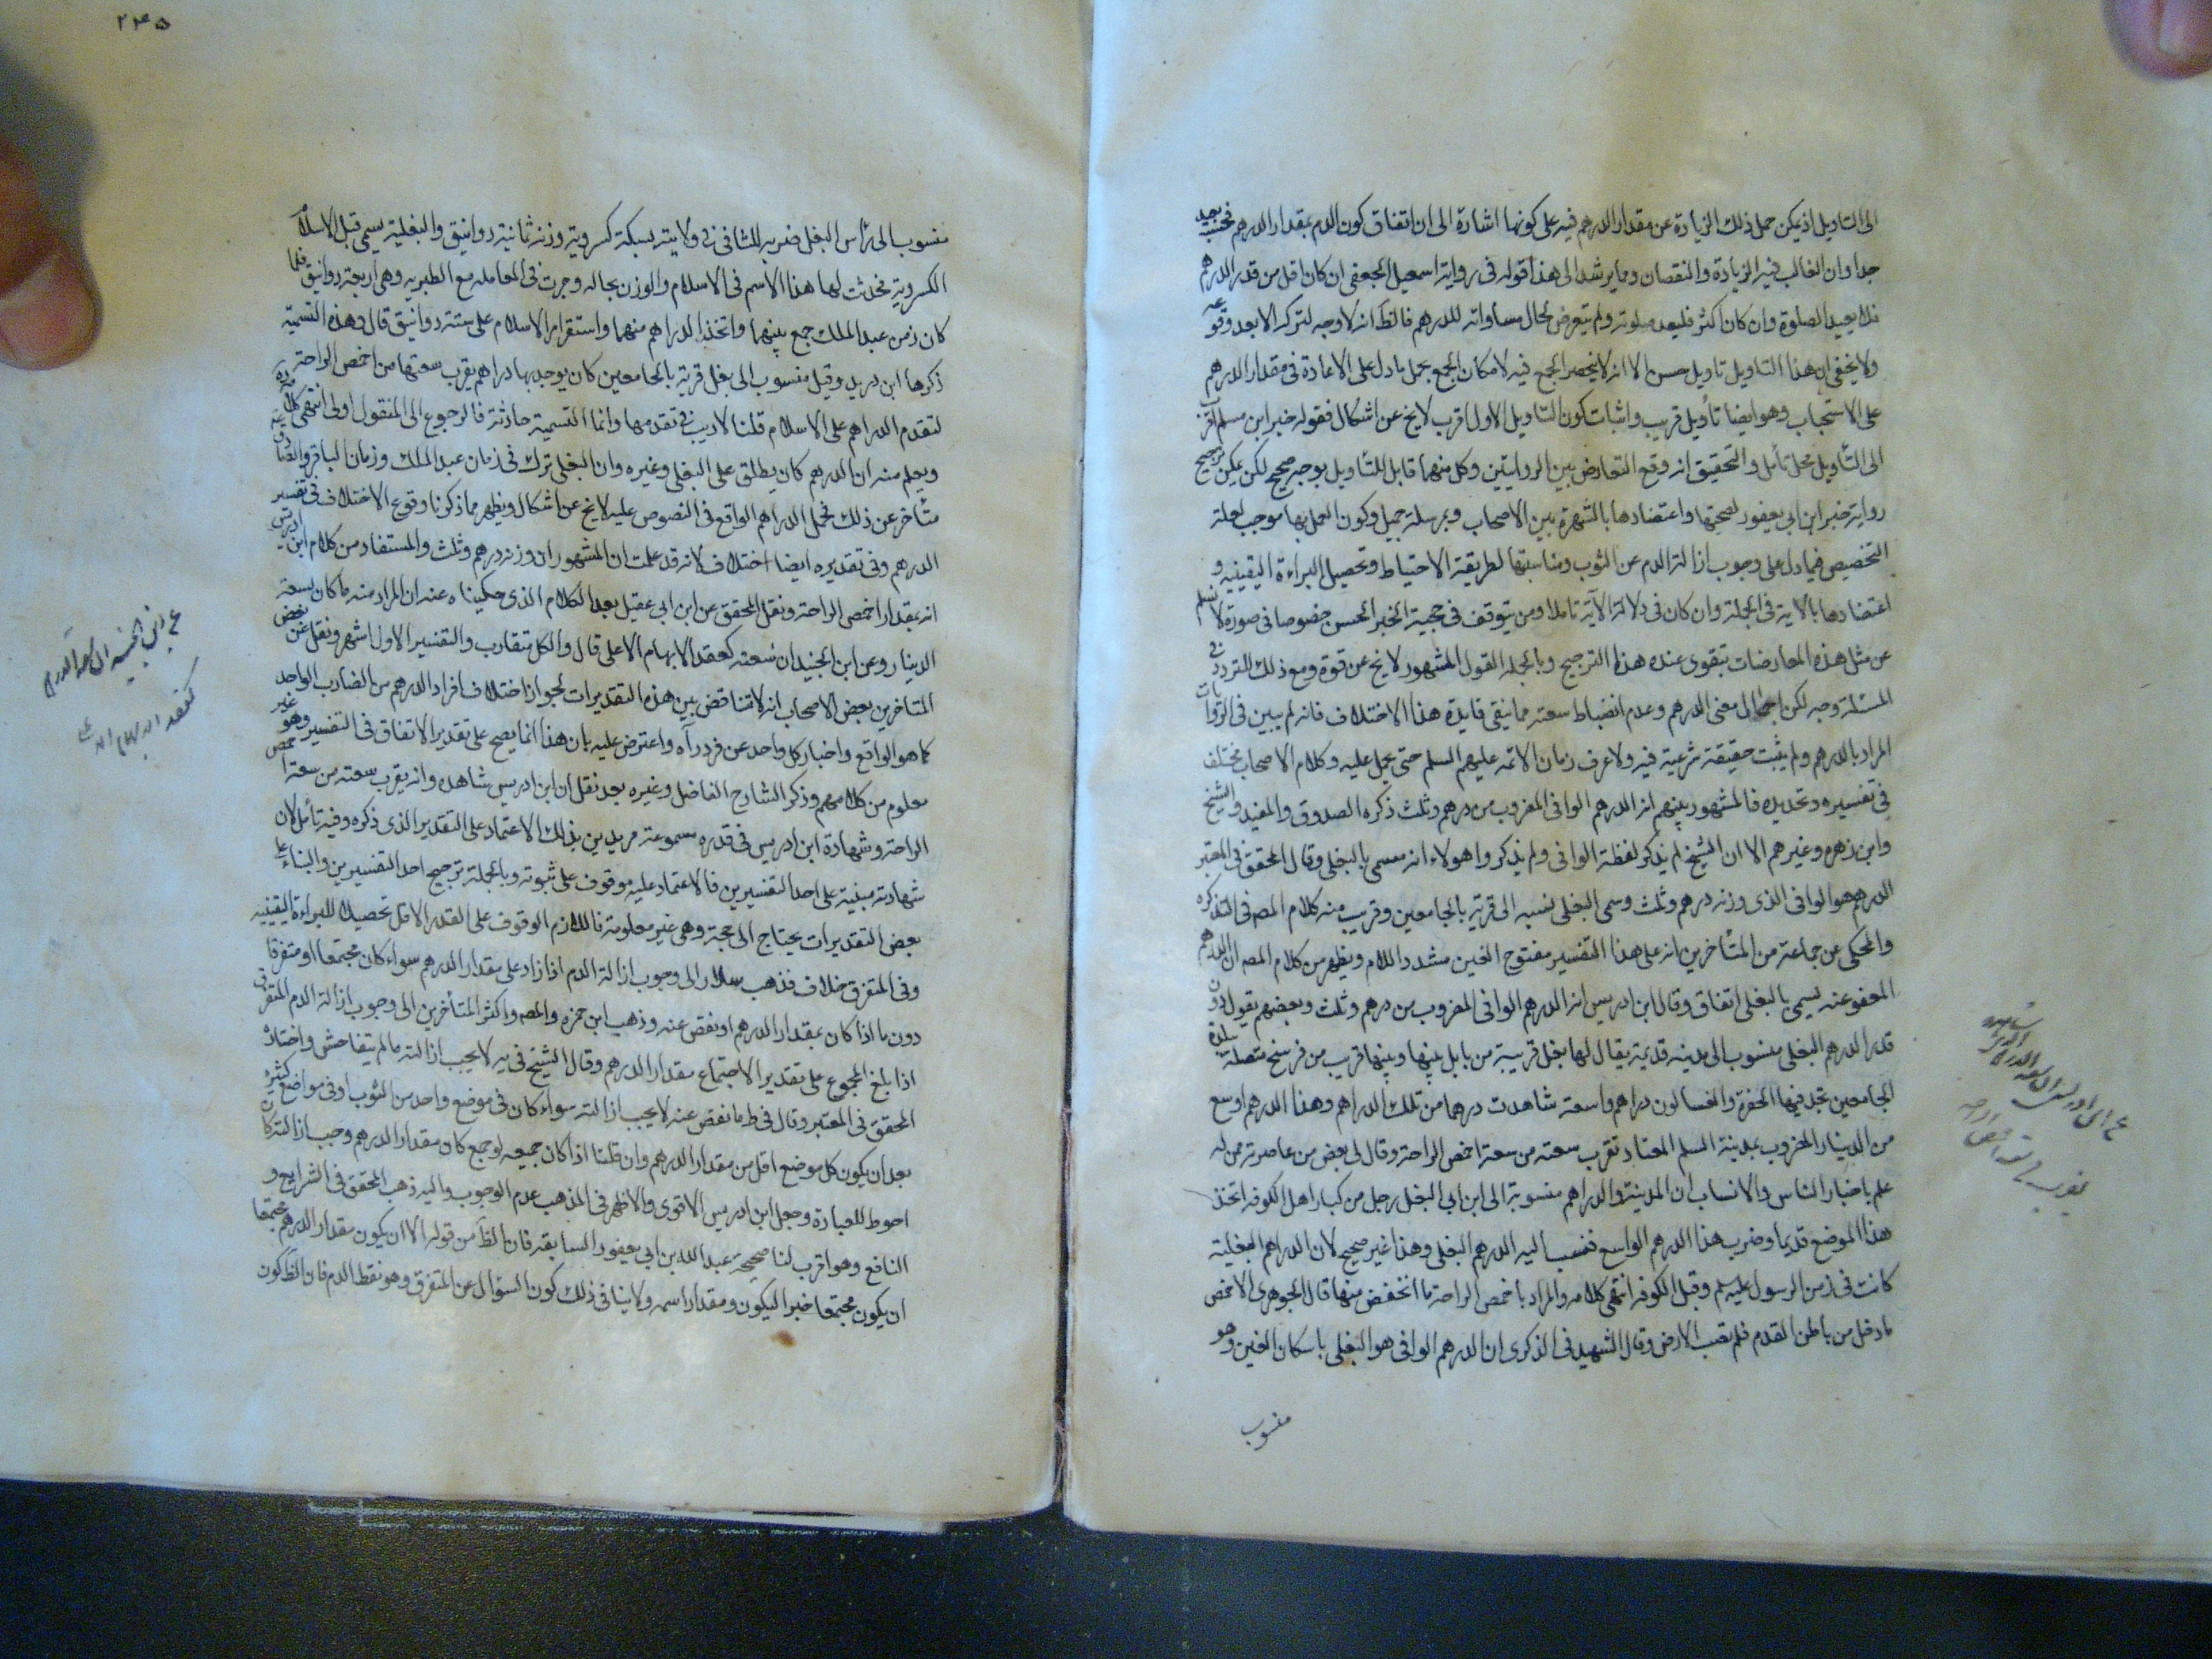 الى التاويل اذ يمكن حمل ذلك الزيادة عن مقدار الدرهم فيه على كونها اشارة الى ان اتفاق كون الدم بمقدار الدرهم فحسب بعيد
جدا وان الغالب فيه الزيادة والنقصان ومما يرشد الى هذا قوله فى رواية اسمعيل الجعفى ان كان اقل من قدر الدرهم
فلا يعيد الصلوة وان كان اكثر فليعد صلوته ولم يتعرض لحال مساواته للدرهم فالظ انه لا وجه لتركه الا بعد وقوعه
ولا يخفى ان هذا التاويل تاويل حسن الا انه لا ينحصر الجمع فيه لامكان الجمع بحمل ما دل على الاعادة فى مقدار الدرهم
على الاستحباب وهو ايضا تأويل قريب واثبات كون التاويل الاول اقرب لا يخ عن اشكال فقوله خبر ابن مسلم اقرب
الى التأويل محل تأمل والتحقيق انه وقع التعارض بين الروايتين وكل منهما قابل للتأويل بوجه صحيح لكن يمكن ترجيح
رواية خبر ابن ابى يعفور لصحتها واعتضادها بالشهرة بين الاصحاب وبمرسلة جميل وكون العمل بها موجب لقلة
التخصيص فيما دل على وجوب ازالة الدم عن الثوب ومناسبتها لطريقة الاحتياط وتحصيل البراءة اليقينية و
اعتضادها بالاية فى الجملة وان كان فى دلالة الآية تاملا ومن يتوقف فى حجية الخبر الحسن خصوصا فى صورة لا تسلم
عن مثل هذه المعارضات يتقوى عنده هذا الترجيح وبالجملة القول المشهور لا يخ عن قوة ومع ذلك للتردد فى
المسئلة وجه لكن اجمال معنى الدرهم وعدم انضباط سعته مما ينفى فايدة هذا الاختلاف فانه لم يبين فى الروايات
المراد بالدرهم ولم يثبت حقيقة شرعية فيه ولا عرف زمان الائمة عليهم السلم حتى يحمل عليه وكلام الاصحاب مختلف
فى تفسيره وتحديده فالمشهور بينهم انه الدرهم الوافى المضروب من درهم وثلث ذكره الصدوق والمفيد والشيخ
وابن زهره وغيرهم الا ان الشيخ لم يذكر لفظة الوافى ولم يذكروا هولاء انه مسمى بالبغلى وقال المحقق فى المعتبر
الدرهم هو الوافى الذى وزنه درهم وثلث وسمى البغلى لنسبه الى قرية بالجامعين وقريب منه كلام المصه فى التذكره
والمحكى عن جماعة من المتأخرين انه على هذا التفسير مفتوح الغين مشدد اللام ويظهر من كلام المصه ان الدرهم
المعفو عنه يسمى بالبغلى اتفاق وقال ابن ادريس انه الدرهم الوافى المضروب من درهم وثلث وبعضهم يقول دون
قدر الدرهم البغلى منسوب الى مدينه قديمة يقال لها بغل قريبة من بابل بينها وبينها قريب من فرسخ متصلة ببلدة
الجامعين تجد فيها الحفرة والغسالون دراهم واسعة شاهدت درهما من تلك الدراهم وهذا الدرهم اوسع
من الدينار المضروب بمدينة السلم المعتاد تقرب سعته من سعة اخمص الراحة وقال لى بعض من عاصرته ممن له
علم باخبار الناس والانساب ان المدينة والدراهم منسوبة الى ابن ابى البغل رجل من كبار اهل الكوفه اتخذ
هذا الموضع قديما وضرب هذا الدرهم الواسع فنسب اليه الدرهم البغلى وهذا غير صحيح لان الدراهم البغلية
كانت فى زمن الرسول عليه سلم وقبل الكوفه انتهى كلامه والمراد باخمص الراحة ما انخفض منها قال الجوهرى الاخمص
ما دخل من باطن القدم فلم يصب الارض وقال الشهيد فى الذكرى ان الدرهم الوافى هو البغلى باسكان الغين وهو
منسوب
٢٤٥
منسوب الى رأس البغل ضربه للثانى فى ولايته بسكة كسروية وزنه ثمانية دوانيق والبغلية يسمى قبل الاسلام
الكسروية فحدثت لها هذا الاسم فى الاسلام والوزن بحاله وجرت فى المعاملة مع الطبريه وهى اربعة دوانيق فلما
كان زمن عبد الملك جمع بينهما واتخذ الدراهم منهما واستقر امر الاسلام على ستة دوانيق قال وهذه التسمية
ذكرها ابن دريد وقيل منسوب الى بغل قرية بالجامعين كان يوجد بها دراهم يقرب سعتها من اخمص الراحة
لتقدم الدراهم على الاسلام قلنا لا ريب فى تقدمها وانما التسمية حادثة فالرجوع الى المنقول اولى انتهى كلامه
ويعلم منه ان الدرهم كان يطلق على البغلى وغيره وان البغلى ترك فى زمان عبد الملك وزمان الباقر والصادق
متأخر عن ذلك فحمل الدراهم الواقع فى النصوص عليه لا يخ عن اشكال ويظهر مما ذكرنا وقوع الاختلاف فى تفسير
الدرهم وفى تقديره ايضا اختلاف لانه قد علمت ان المشهور ان وزنه درهم وثلث والمستفاد من كلام ابن ادريس
انه بمقدار اخمص الراحة ونقل المحقق عن ابن ابى عقيل بعد الكلام الذى حكيناه عنه ان المراد منه ما كان بسعة
الدينار وعن ابن الجنيد ان سعته كعقد الابهام الاعلى قال والكل متقارب والتفسير الاول اشهر ونقل عن بعض
المتاخرين بعض الاصحاب انه لا تناقض بين هذه التقديرات لجواز اختلاف افراد الدرهم من الضارب الواحد
كما هو الواقع واخبار كل واحد عن فرد رآه واعترض عليه بان هذا انما يصح على تقدير الاتفاق فى التفسير وهو غير
معلوم من كلامهم وذكر الشارح الفاضل وغيره بعد نقل ان ابن ادريس شاهده وانه يقرب سعته من سعة اخمص
الراحة وشهادة ابن ادريس فى قدره مسموعة مريدين بذلك الاعتماد على التقدير الذى ذكره وفيه تأمل لان
شهادته مبنية على احد التفسيرين فالاعتماد عليه موقوف على ثبوته وبالجملة ترجيح احد التفسيرين والبناء على
بعض التقديرات يحتاج الى حجة وهى غير معلومة فاللازم الوقوف على القدر الاقل تحصيلا للبراءة اليقينيه
وفى المتفرق خلاف فذهب سلار الى وجوب ازالة الدم اذا زاد على مقدار الدرهم سواء كان مجتمعا او متفرقا
دون ما اذا كان بمقدار الدرهم او نقص عنه وذهب ابن حمزه والمصه واكثر المتأخرين الى وجوب ازالة الدم المتفرق
اذا بلغ المجموع على تقدير الاجتماع مقدار الدرهم وقال الشيخ فى يه لا يجب ازالته ما لم يتفاحش واختاره
المحقق فى المعتبر وقال فى ط ما نقص عنه لا يجب ازالته سواء كان فى موضع واحد من الثوب او فى مواضع كثيرة
بعد ان يكون كل موضع اقل من مقدار الدرهم وان قلنا اذا كان جميعه لو جمع كان مقدار الدرهم وجب ازالته كان
احوط للعبادة وجعل ابن ادريس الاقوى والاظهر فى المذهب عدم الوجوب واليه ذهب المحقق فى الشرايع و
النافع وهو اقرب لنا صحيحة عبد الله بن ابى يعفور السابقه فان الظ من قوله الا ان يكون مقدار الدرهم مجتمعا
ان يكون مجتمعا خبرا ليكون ومقدار اسمه ولا ينافى ذلك كون السؤال عن المتفرق وهو نقط الدم فان الظ كون